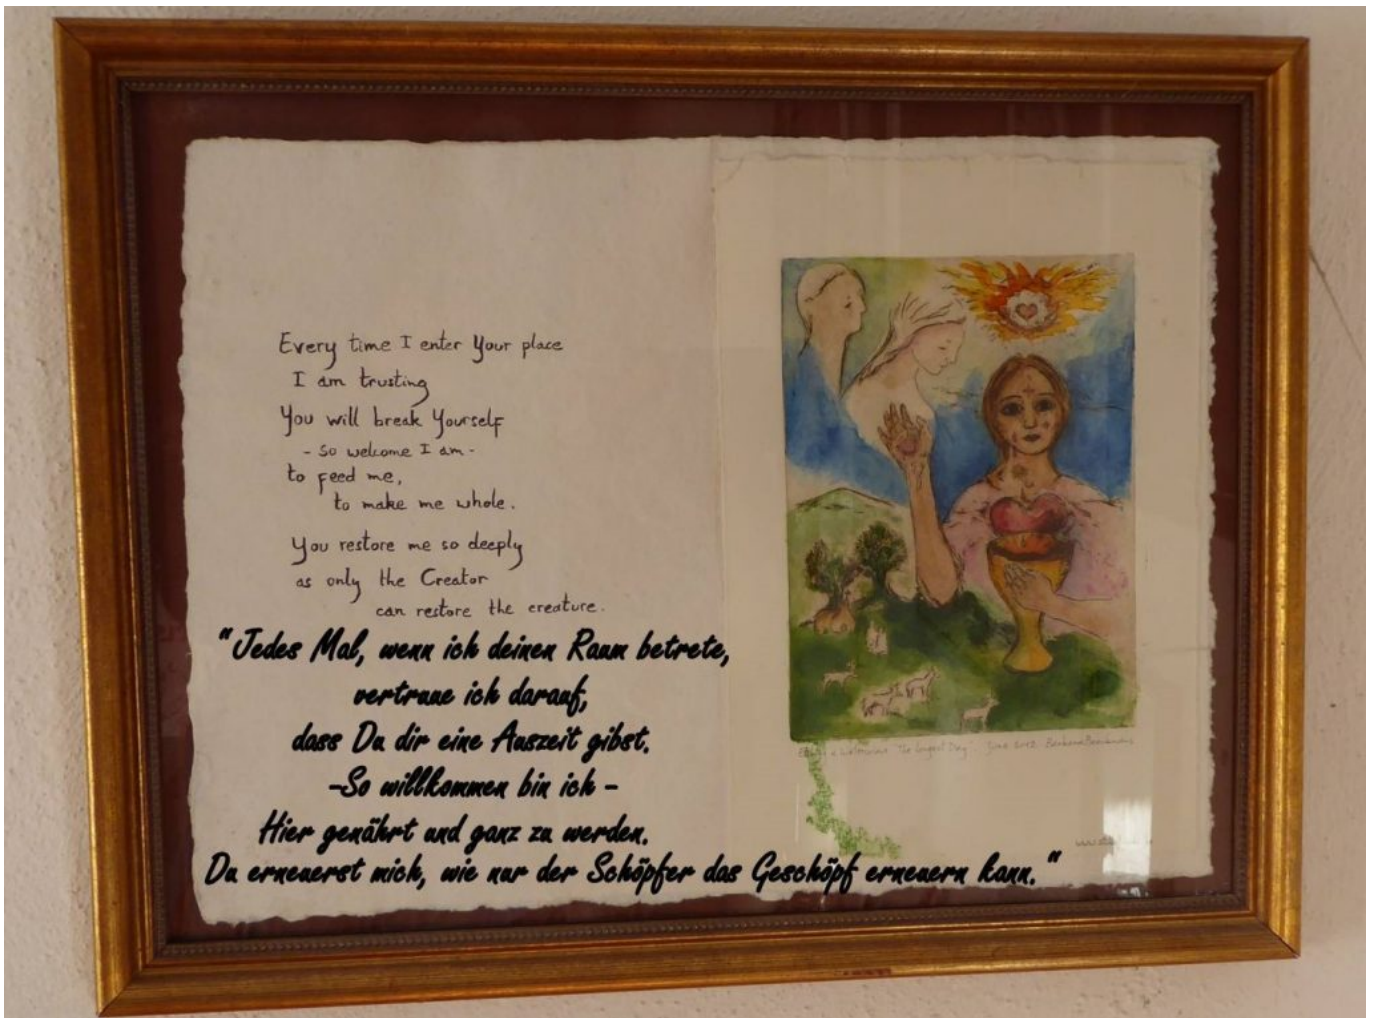 Every time I enter Your place
I am trusting
You will break Yourself
- so welcome I am -
to feed me,
to make me whole.
You restore me so deeply
as only the Creator
can restore the creature.
"Jedes Mal, wenn ich deinen Raum betrete,
vertraue ich darauf,
dass Du dir eine Auszeit gibst.
-So willkommen bin ich -
Hier genährt und ganz zu werden.
Du erneuerst mich, wie nur der Schöpfer das Geschöpf erneuern kann."
"The Longest Day" June 2012 Barbara